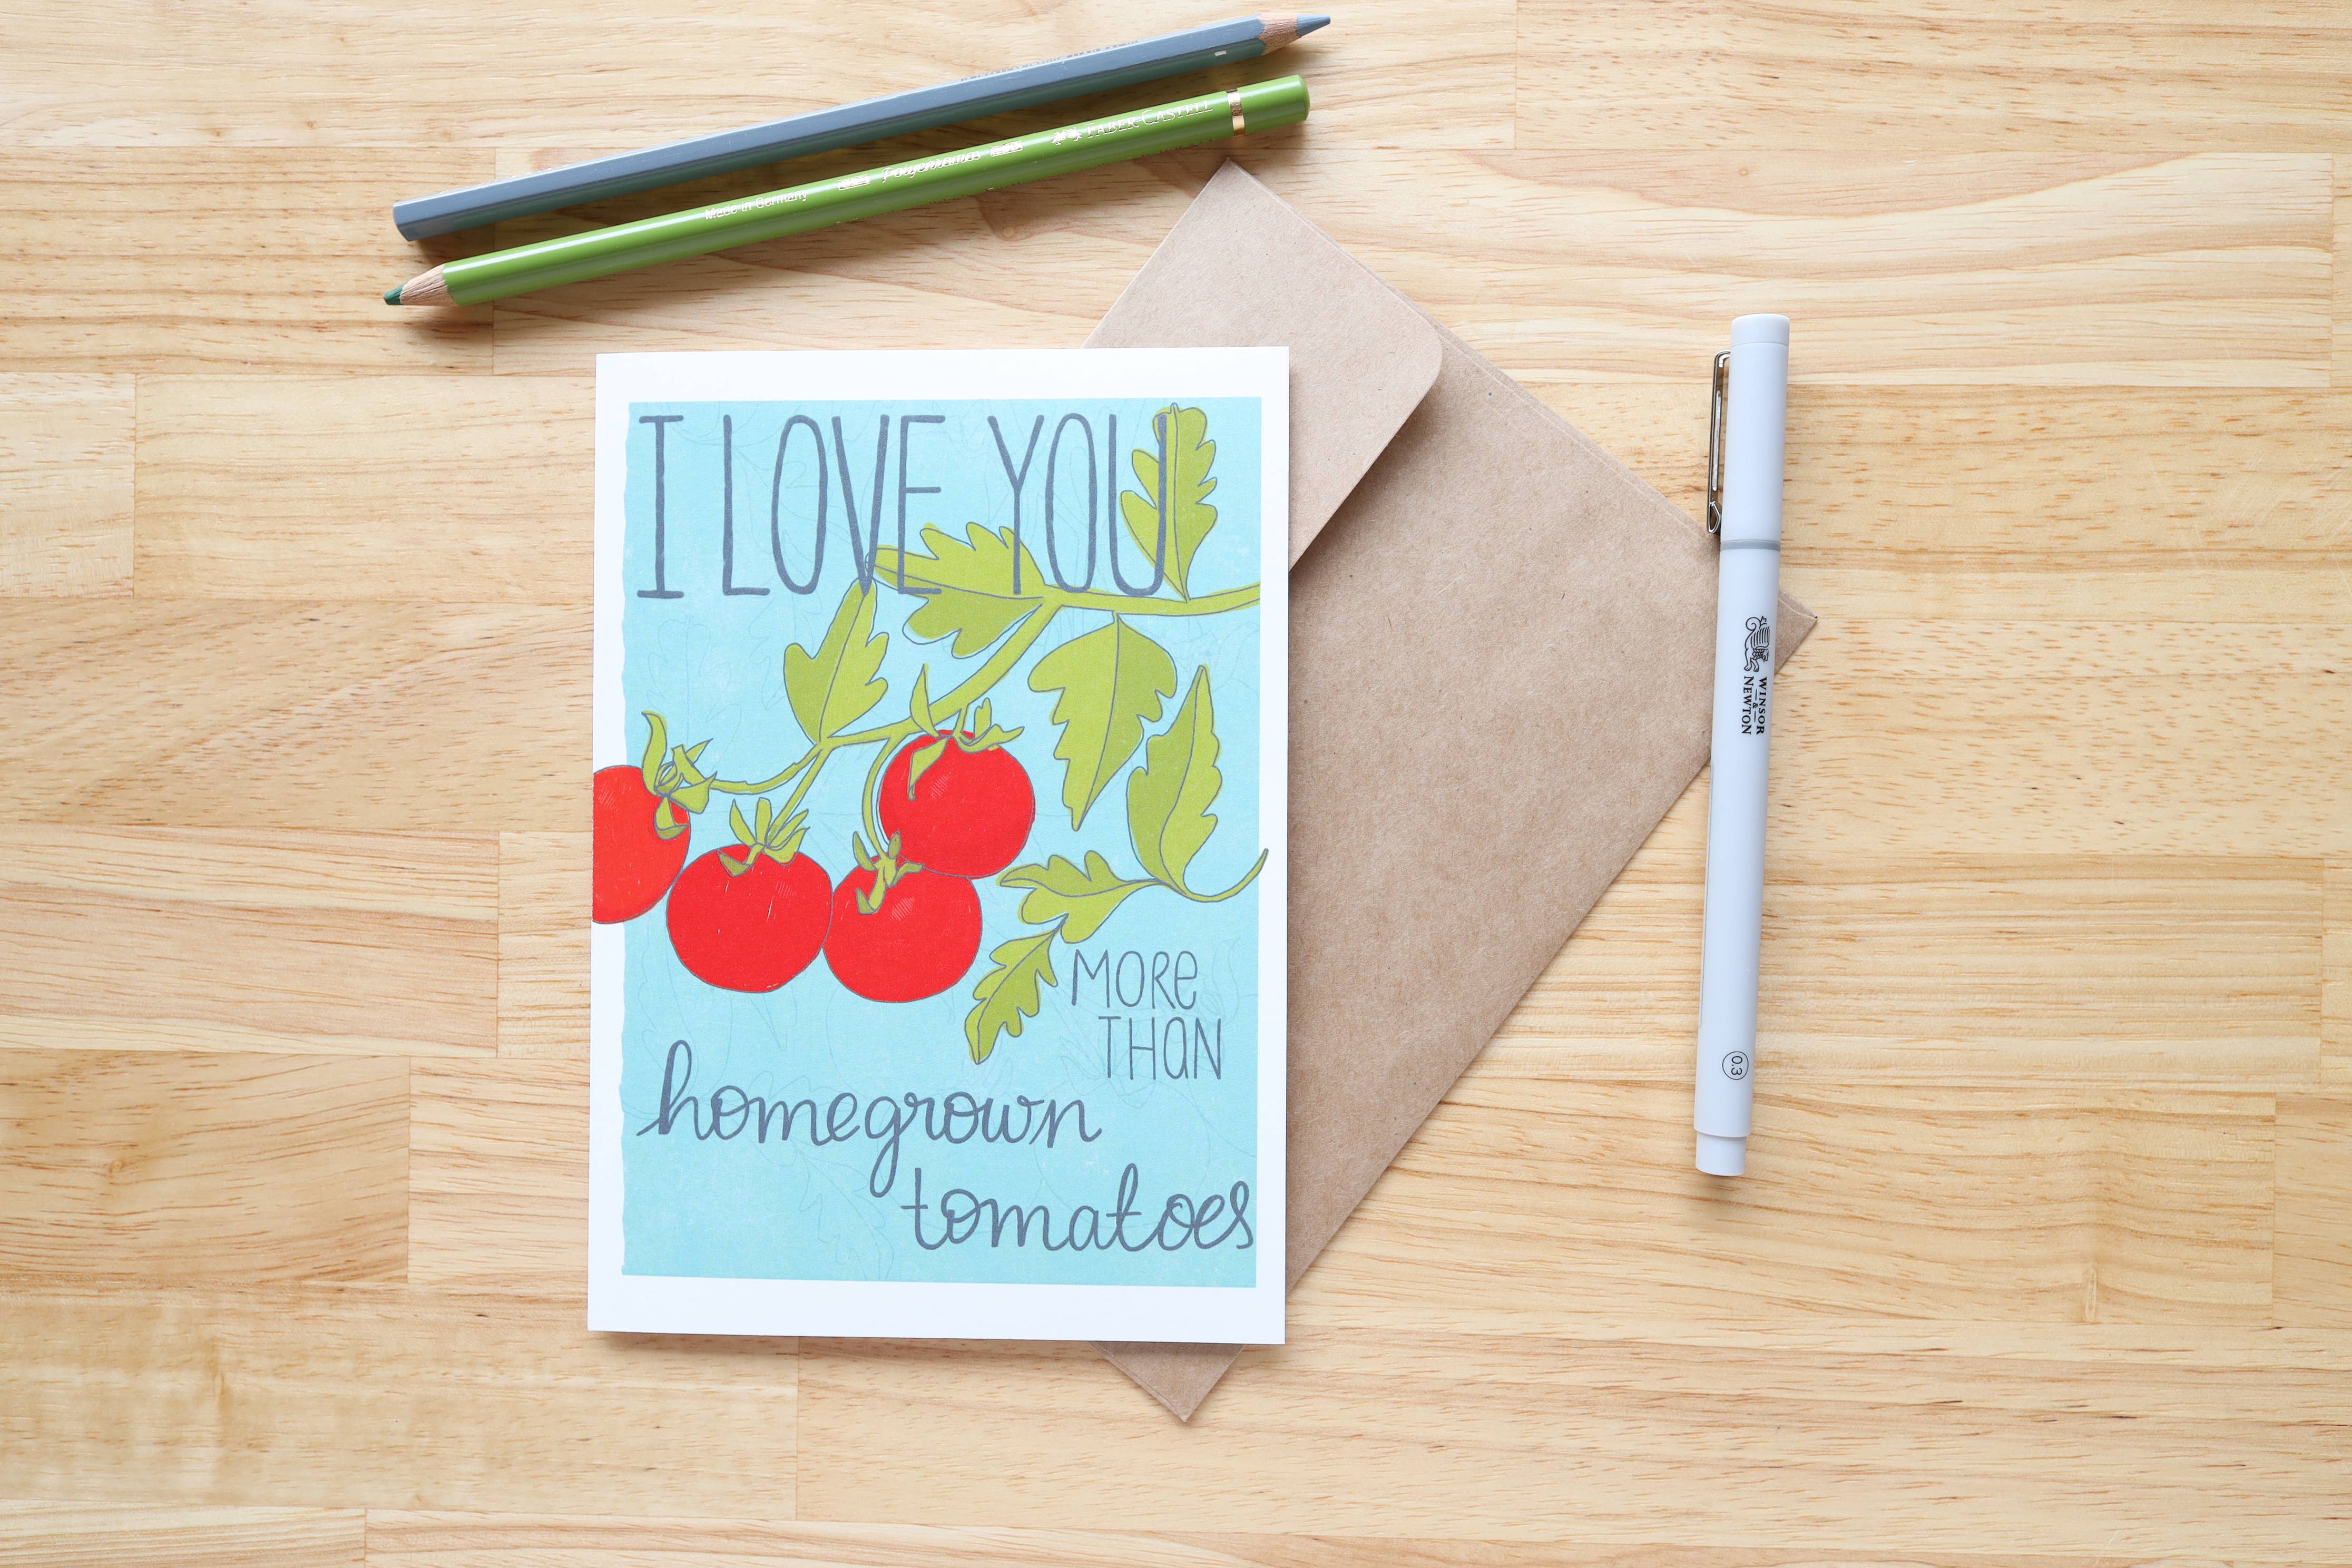 FABER-CASTELL
Polychromos
Made in Germany
I LOVE YOU
MORE
THAN
homegrown
tomatoes
WINSOR
&
NEWTON
0.3